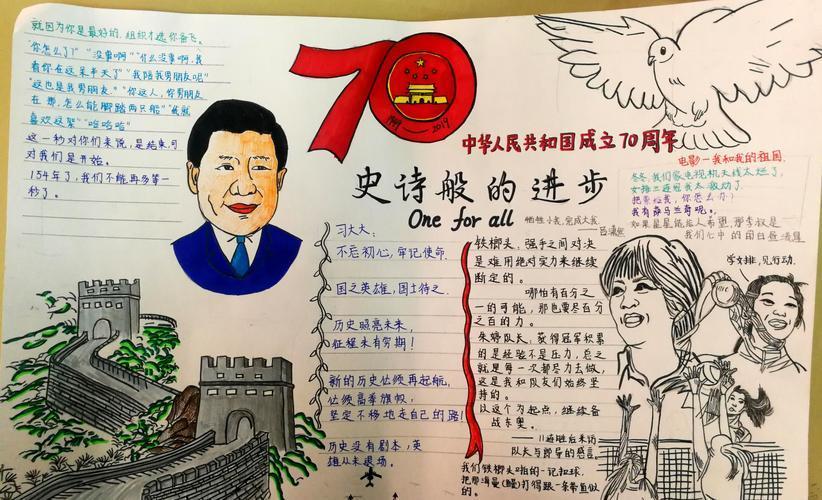 就因为你是最好的,组织才选你奋飞。
"你怎么了?""没事啊""什么没事啊,我
看你在这呆半天了""我陪我男朋友呢"
"这也是我男朋友。""你这人,你男朋友
在那,怎么能脚踏两只船""我就
喜欢这架""哈哈哈"
这一秒对你们来说,是结束,可
对我们是开始。
154年了,我们不能再多等一
秒了。
70
1949—2019
中华人民共和国成立70周年
史诗般的进步
One for all
牺牲小我,完成大我。
电影—我和我的祖国
冬冬,我们家电视机天线太烂了,
女排三连冠我太激动了
我有
学女排,见行动.
习大大:
不忘初心,牢记使命.
国之英雄,国士待之.
历史照亮未来,
征程未有穷期!
新的历史伫倾再起航,
伫倾高举旗帜,
坚定不移地走自己的路!
历史没有剧本,英
雄从未退场。
铁榔头,强手之间对决
是难用绝对实力来继续
断定的。
哪怕有百分之
一的可能,那也要尽百分
之百的力。
朱婷队长,获得冠军积累
的是经验不是压力,总之
就是每一次都尽力去做,
这是我和队友们始终坚
持的。
以这个为起点,继续备
战东奥。
——11连胜后采访
队长与郎导的感言。
我们铁榔头啪的一记扣球.
把那海曼(鳗)打得跟一条带鱼似